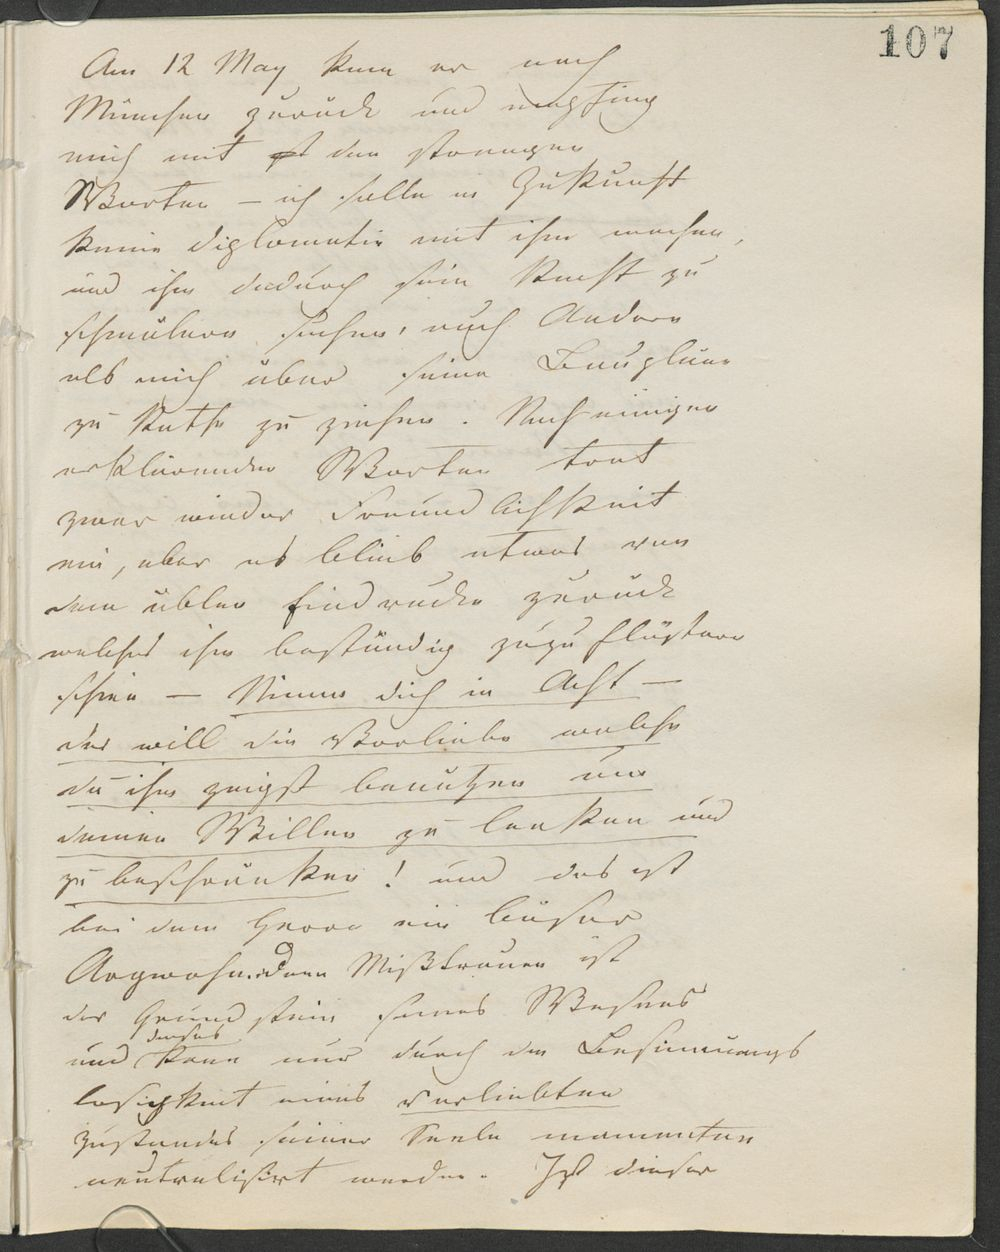 107
Am 12 May kam er nach
München zurück und empfing
mich mit den strengen
Worten – ich solle in Zukunft
keine Diplomatie mit ihm machen,
und ihm dadurch sein Recht zu
schmälern suchen, auch Andere
als mich über seine Baupläne
zu Rathe zu ziehen. Nach einigen
erklärenden Worten trat
zwar wieder Freundlichkeit
ein, aber es blieb etwas von
dem üblen Eindrucke zurück
welches ihm beständig zuzuflüstern
schien – Nimm dich in Acht –
der will die Vorliebe welche
du ihm zeigst benützen um
deinen Willen zu lenken und
zu beschränken! und das ist
bei dem Herrn ein böser
Argwohn. Denn Mißtrauen ist
der Grundstein seines Wesens
dieses
und kann nur durch die Besinnungs
losigkeit eines verliebten
Zustandes seiner Seele momentan
neutralisirt werden. Ist dieser